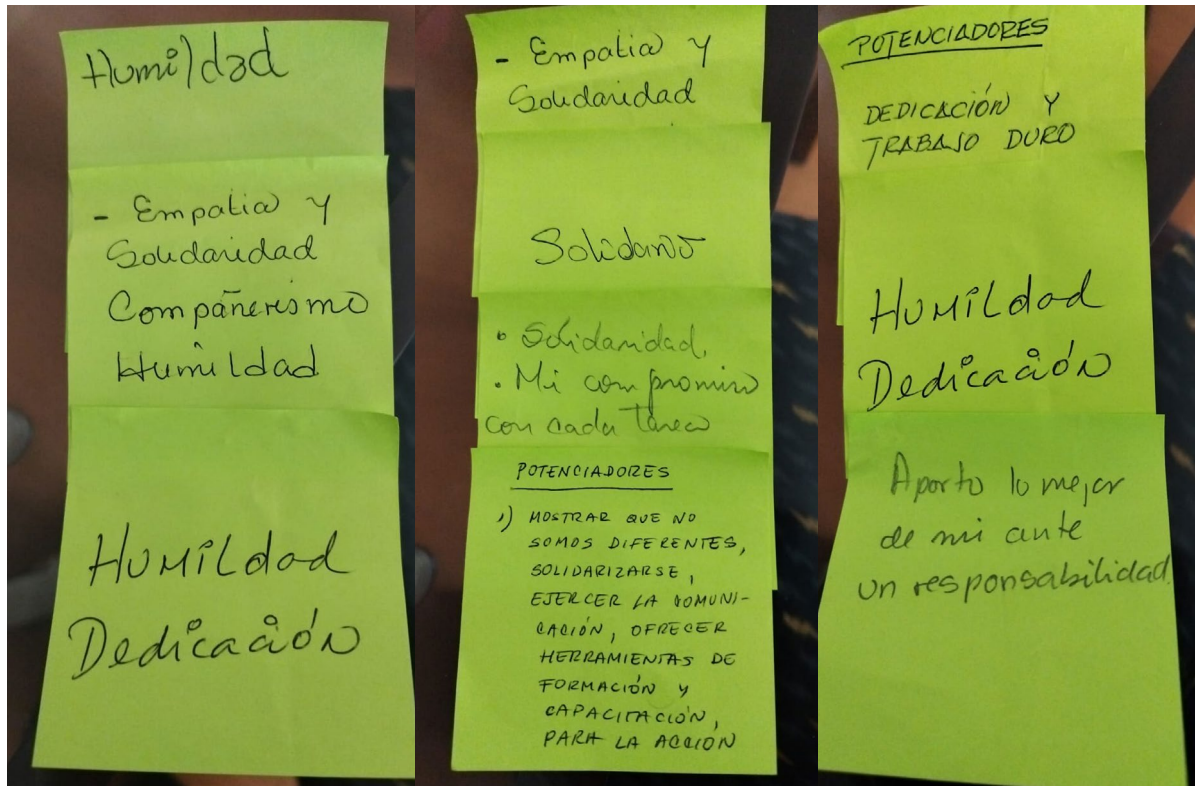 Humildad
- Empatia y
Solidaridad
Compañerismo
Humildad
Humildad
Dedicación
- Empatia y
Solidaridad
Solidario
• Solidaridad,
• Mi compromiso
con cada tarea
POTENCIADORES
1) MOSTRAR QUE NO
SOMOS DIFERENTES,
SOLIDARIZARSE,
EJERCER LA COMUNI-
CACIÓN, OFRECER
HERRAMIENTAS DE
FORMACIÓN Y
CAPACITACIÓN,
PARA LA ACCIÓN
POTENCIADORES
DEDICACIÓN Y
TRABAJO DURO
Humildad
Dedicación
Aporto lo mejor
de mi ante
un responsabilidad.